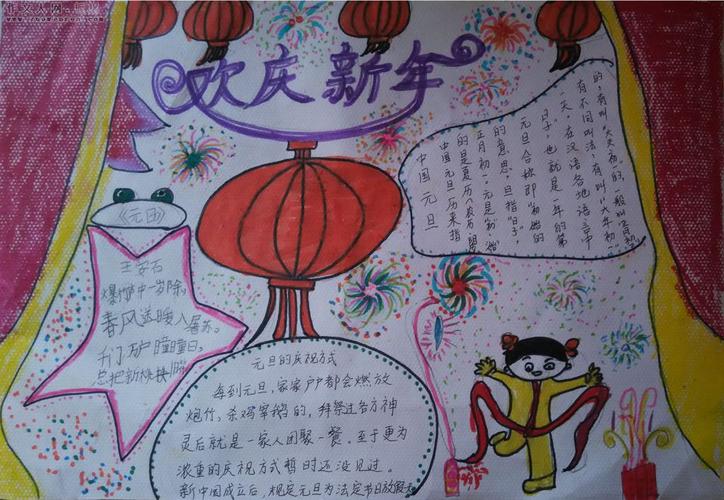 欢庆新年
《元日》
王安石
爆竹声中一岁除，
春风送暖入屠苏。
千门万户曈曈日，
总把新桃换旧
中国元旦
中国元旦历来指
的是夏历(农历、阴
正月初一。元是
的意思，旦指"日子"，
元旦合
日子，也就是一年的第
一天，在汉语各地语言中
有不同叫法，有叫"大年初一"
的，有叫"大天初一"的，一般叫
元旦的庆祝方式
每到元旦，家家户户都会燃放
炮竹，杀鸡宰鹅的，拜祭过各方神
灵后就是一家人团聚一餐。至于更为
浓重的庆祝方式暂时还没见过。
新中国成立后，规定元旦为法定节日放假